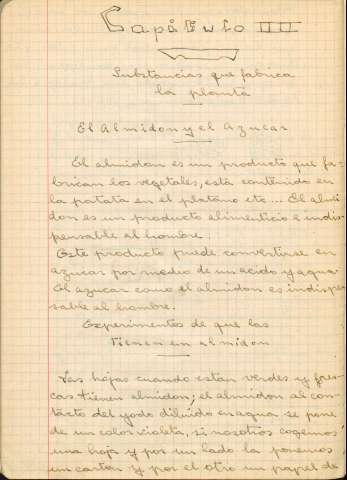 Capítulo III
Substancias que fabrica
la planta
El Almidon y el Azucar
El almidon es un producto que fa-
brican los vegetales, está contenido en
la patata en el platano etc... El almi
don es un producto alimenticio e indis-
pensable al hombre.
Este producto puede convertirse en
azucar por medio de un acido y agua
El azucar como el almidon es indispen
sable al hombre.
Experimentos de que las
tienen en almidon
Las hojas cuando estan verdes y fres-
cas tienen almidon; el almidon al con-
tacto del yodo diluido en agua se pone
de un color violeta, si nosotros cogemos
una hoja y por un lado la ponemos
un carton y por el otro un papel de